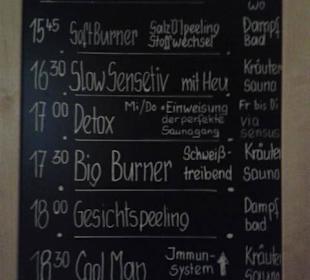 wo
15 45 Soft Burner SalzÖlpeeling Stoffwechsel Dampf Bad
16 30 Slow Sensetiv mit Heu Kräuter Sauna
17 00 Detox Mi/Do • Einweisung der perfekte Saunagang Fr bis Di via sensus
17 30 Big Burner Schweiß-treibend Kräuter Sauna
18 00 Gesichtspeeling Dampf bad
18 30 Cool Man Immun-System ↑ Kräuter Sauna